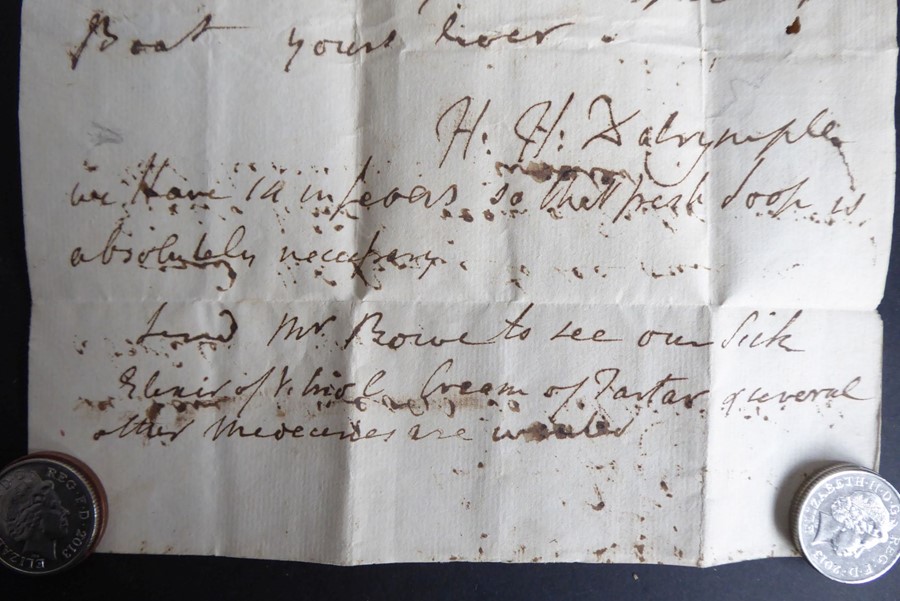 Boat yours ever.
H. H. Dalrymple
we Have 14 in fevers so that fresh Soop is
absolutely necessary.
Send Mr. Bowe to see our Sick
Elixir of Vitriol Cream of Tartar & several
other Medecines are wanted
ELIZABETH·II·D·G
REG·F·D·
ELIZAB
REG·F·D·2013